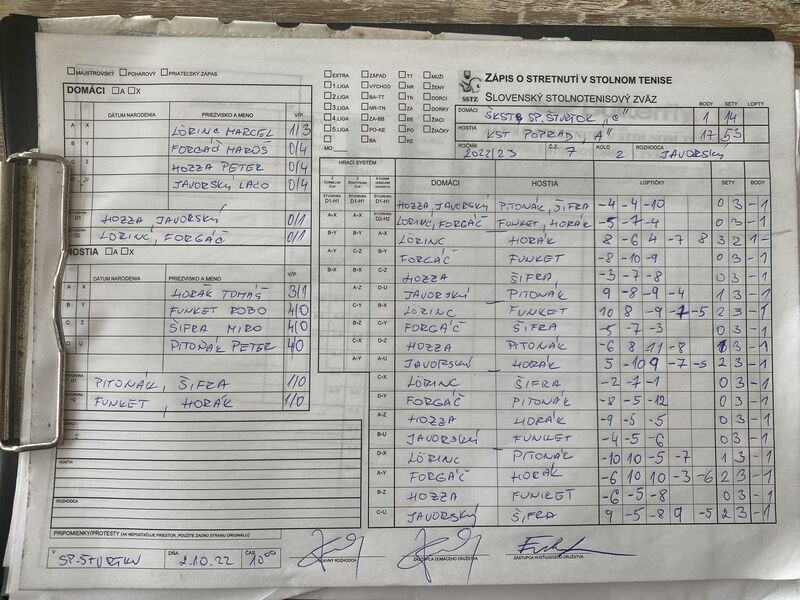 MAJSTROVSKÝ POHÁROVÝ PRIATEĽSKÝ ZÁPAS
DOMÁCI A X
DÁTUM NARODENIA PRIEZVISKO A MENO V/P
A X LÖRINC MARCEL 1/3
B Y FORGÁČ MAROŠ 0/4
C Z HOZZA PETER 0/4
JAVORSKÝ LACO 0/4
D1 HOZZA JAVORSKÝ 0/1
LÖRINC, FORGÁČ 0/1
HOSTIA A X
DÁTUM NARODENIA PRIEZVISKO A MENO V/P
A X HORÁK TOMÁŠ 3/1
B Y FUNKET ROBO 4/0
C Z ŠIFRA MIRO 4/0
D U PITOŇÁK PETER 4/0
PITONÁK, ŠIFRA 1/0
FUNKET, HORÁK 1/0
HOSTIA
ROZHODCA
PRIPOMIENKY/PROTESTY (AK NEPOSTAČUJE PRIESTOR, POUŽITE ZADNÚ STRANU ORIGINÁLU)
V SP. ŠTVRTKU DŇA 2.10.22 ČAS 10⁰⁰
HLAVNÝ ROZHODCA ZÁSTUPCA DOMÁCEHO DRUŽSTVA ZÁSTUPCA HOSŤUJÚCEHO DRUŽSTVA
EXTRA ZÁPAD TT MUŽI
1.LIGA VÝCHOD NR ŽENY
2.LIGA BA-TT TN DORCI
3.LIGA NR-TN ZA DORKY
4.LIGA ZA-BB BB ŽIACI
5.LIGA PO-KE PO ŽIAČKY
BA KE
MO
SSTZ
ZÁPIS O STRETNUTÍ V STOLNOM TENISE
SLOVENSKÝ STOLNOTENISOVÝ ZVÄZ
BODY SETY LOPTY
DOMÁCI ŠKST SP. ŠTVRTOK "C" 1 14
HOSTIA KST POPRAD "A" 17 53
ROČNÍK 2022/23 Č.Z. 7 KOLO 2 ROZHODCA JAVORSKÝ
HRACÍ SYSTÉM
DOMÁCI HOSTIA LOPTIČKY SETY BODY
D1-H1 D1-H1 HOZZA, JAVORSKÝ PITONÁK, ŠIFRA -4 -4 -10 0 3 -1
A-X A-X D2-H2 LÖRINC, FORGÁČ FUNKET, HORÁK -5 -7 -4 0 3 -1
B-Y B-Y A-X LÖRINC HORÁK 8 -6 4 -7 8 3 2 1-
A-Y C-Z B-Y FORGÁČ FUNKET -8 -10 -9 0 3 -1
B-X B-X C-Z HOZZA ŠIFRA -3 -7 -8 0 3 -1
A-Z D-U JAVORSKÝ PITONÁK 9 -8 -9 -4 1 3 -1
C-Y B-X LÖRINC FUNKET 10 8 -9 -7 -5 2 3 -1
B-Z C-Y FORGÁČ ŠIFRA -5 -7 -3 0 3 -1
C-X D-Z HOZZA PITONÁK -6 8 -11 -8 1 3 -1
A-Y A-U JAVORSKÝ HORÁK 5 -10 9 -7 -5 2 3 -1
C-X LÖRINC ŠIFRA -2 -7 -1 0 3 -1
D-Y FORGÁČ PITONÁK -8 -5 -12 0 3 -1
A-Z HOZZA HORÁK -9 -5 -5 0 3 -1
B-U JAVORSKÝ FUNKET -4 -5 -6 0 3 -1
D-X LÖRINC PITONÁK -10 10 -5 -7 1 3 -1
A-Y FORGÁČ HORÁK -6 10 10 -3 -6 2 3 -1
B-Z HOZZA FUNKET -6 -5 -8 0 3 -1
C-U JAVORSKÝ ŠIFRA 9 -5 -8 9 -5 2 3 -1